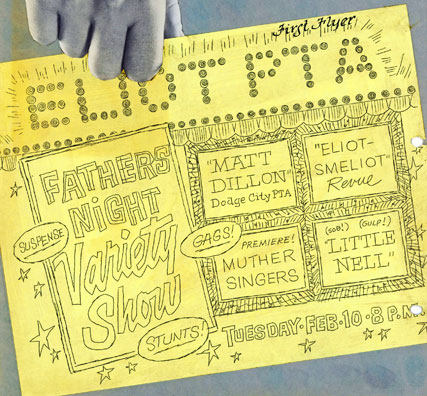 First Flyer
ELIOT PTA
FATHERS'
NIGHT
Variety
Show
SUSPENSE
GAGS!
STUNTS!
"MATT
DILLON"
Dodge City PTA
"ELIOT-
SMELIOT"
Revue
PREMIERE!
MUTHER
SINGERS
(SOB!) (GULP!)
"LITTLE
NELL"
TUESDAY·FEB.10·8 P.M.